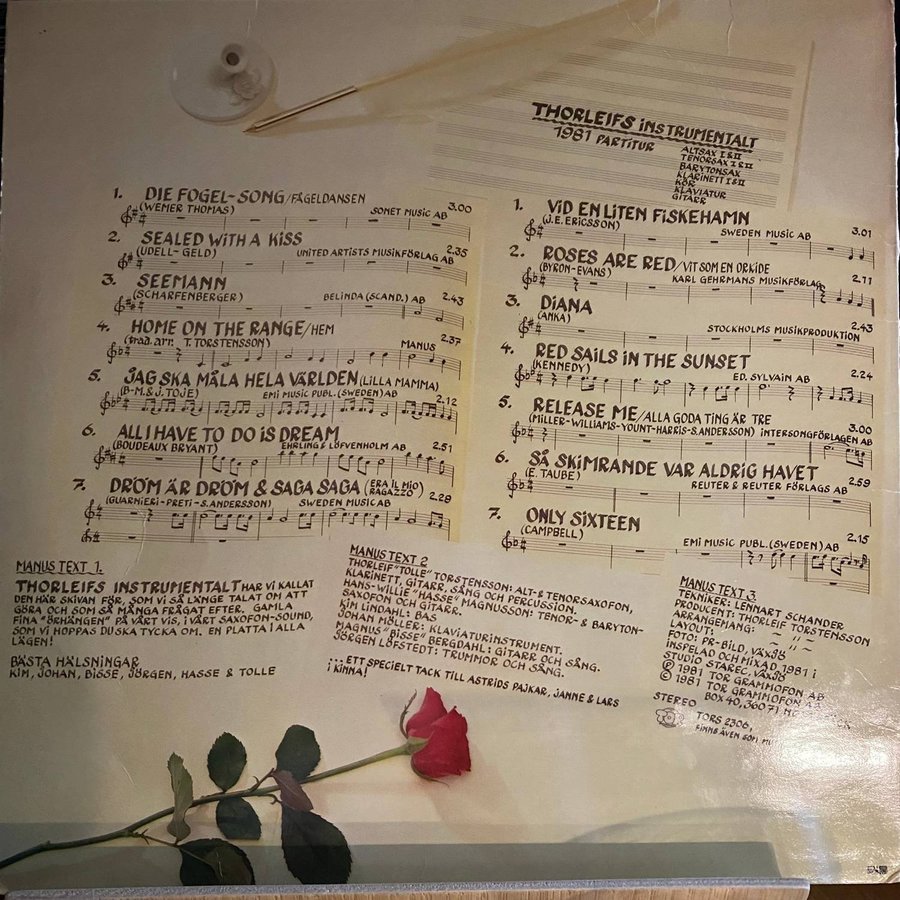 THORLEIFS INSTRUMENTALT
1981 PARTITUR
ALTSAX I & II
TENORSAX I & II
BARYTONSAX
KLARINETT I & II
KÖR
KLAVIATUR
GITARR
1. DIE FOGEL-SONG/FÅGELDANSEN
(WERNER THOMAS) SONET MUSIC AB 3.00
2. SEALED WITH A KISS
(UDELL-GELD) UNITED ARTISTS MUSIKFÖRLAG AB 2.35
3. SEEMANN
(SCHARFENBERGER) BELINDA (SCAND.) AB 2.43
4. HOME ON THE RANGE/HEM
(trad. arr. T. TORSTENSSON) MANUS 2.37
5. JAG SKA MÅLA HELA VÄRLDEN (LILLA MAMMA)
(B-M. & J. TOJE) EMI MUSIC PUBL. (SWEDEN) AB 2.12
6. ALL I HAVE TO DO IS DREAM
(BOUDEAUX BRYANT) EHRLING & LÖFVENHOLM AB 2.51
7. DRÖM ÄR DRÖM & SAGA SAGA (ERA IL MIO RAGAZZO)
(GUARNIERI-PRETI-S. ANDERSSON) SWEDEN MUSIC AB 2.29
1. VID EN LITEN FISKEHAMN
(J.E. ERICSSON) SWEDEN MUSIC AB 3.01
2. ROSES ARE RED/VIT SOM EN ORKIDE
(BYRON-EVANS) KARL GEHRMANS MUSIKFÖRLAG 2.11
3. DIANA
(ANKA) STOCKHOLMS MUSIKPRODUKTION 2.43
4. RED SAILS IN THE SUNSET
(KENNEDY) ED. SYLVAIN AB 2.24
5. RELEASE ME/ALLA GODA TING ÄR TRE
(MILLER-WILLIAMS-YOUNT-HARRIS-S. ANDERSSON) INTERSONGFÖRLAGEN AB 3.00
6. SÅ SKIMRANDE VAR ALDRIG HAVET
(E. TAUBE) REUTER & REUTER FÖRLAGS AB 2.59
7. ONLY SIXTEEN
(CAMPBELL) EMI MUSIC PUBL. (SWEDEN) AB 2.15
MANUS TEXT 1.
THORLEIFS INSTRUMENTALT HAR VI KALLAT
DEN HÄR SKIVAN FÖR, SOM VI SÅ LÄNGE TALAT OM ATT
GÖRA OCH SOM SÅ MÅNGA FRÅGAT EFTER. GAMLA
FINA "ÖRHÄNGEN" PÅ VÅRT VIS, I VÅRT SAXOFON-SOUND,
SOM VI HOPPAS DU SKA TYCKA OM. EN PLATTA I ALLA
LÄGEN!
BÄSTA HÄLSNINGAR
KIM, JOHAN, BISSE, JÖRGEN, HASSE & TOLLE
MANUS TEXT 2
THORLEIF "TOLLE" TORSTENSSON: ALT- & TENORSAXOFON,
KLARINETT, GITARR, SÅNG OCH PERCUSSION.
HANS-WILLIE "HASSE" MAGNUSSON: TENOR- & BARYTON-
SAXOFON OCH GITARR.
KIM LINDAHL: BAS
JOHAN MÖLLER: KLAVIATURINSTRUMENT.
MAGNUS "BISSE" BERGDAHL: GITARR OCH SÅNG.
JÖRGEN LÖFSTEDT: TRUMMOR OCH SÅNG.
...ETT SPECIELT TACK TILL ASTRIDS PAJKAR, JANNE & LARS
I KINNA!
MANUS TEXT 3.
TEKNIKER: LENNART SCHANDER
PRODUCENT: THORLEIF TORSTENSSON
ARRANGEMANG: ~ " ~
LAYOUT: ~ " ~
FOTO: PR-BILD, VÄXJÖ
INSPELAD OCH MIXAD, 1981 I
STUDIO STAREC, VÄXJÖ
Ⓟ 1981 TOR GRAMMOFON AB
© 1981 TOR GRAMMOFON AB
BOX 40, 360 71
STEREO
TORS 2306,
FINNS ÄVEN SOM